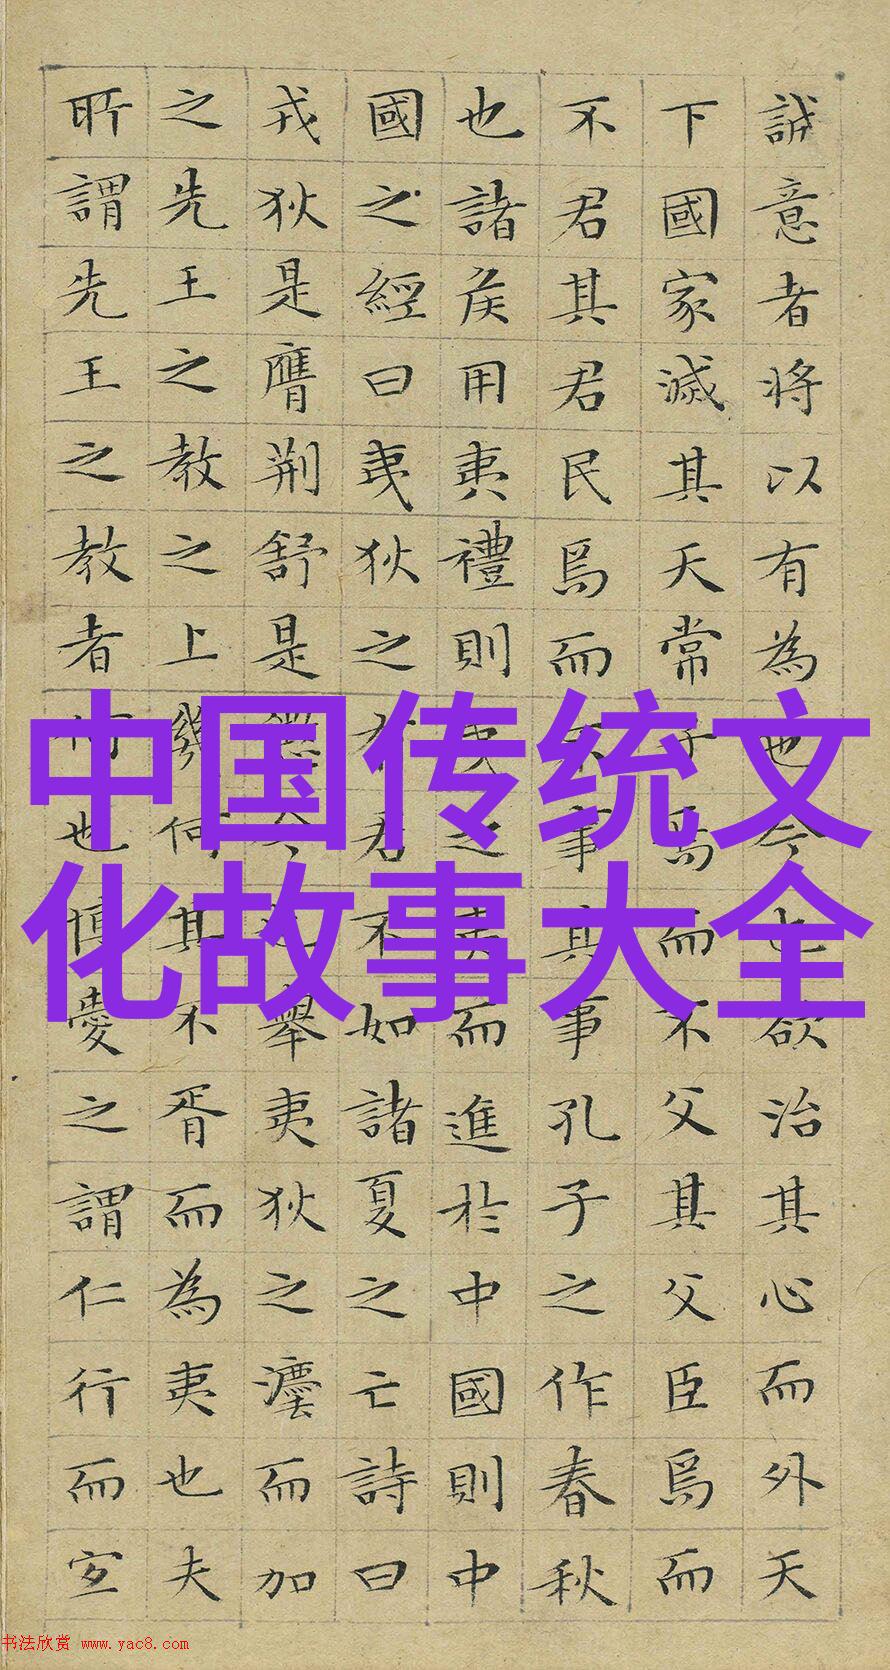 中国传统文
化故事大全
誠意者将以有為也今也欲治其心而外天
下國家滅其天常子焉而不父其父臣焉而
不君其君民焉而不事其事孔子之作春秋
也諸侯用夷禮則夷之夷而進於中國則中
國之經曰夷狄之有君不如諸夏之亡詩曰
戎狄是膺荆舒是懲今也舉夷狄之灋而加
之先王之教之上幾何其不胥而為夷也夫
所謂先王之教者何也博愛之謂仁行而宜
书法欣赏 www.yac8.com